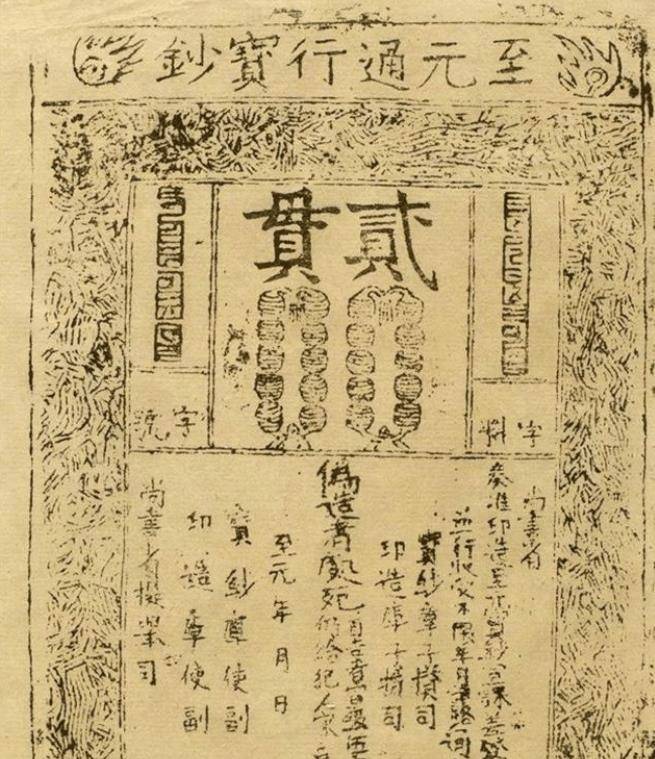 至元通行寶鈔
貳貫
字料
字號
尚書省
奏准印造至元寶鈔宣課差役
並行收受不限年月諸路通
寶鈔庫子攢司
印造庫子攢司
偽造者處死
首告者賞銀伍
仍給犯人家
至元 年 月 日
寶鈔庫使副
印造庫使副
尚書省提舉司